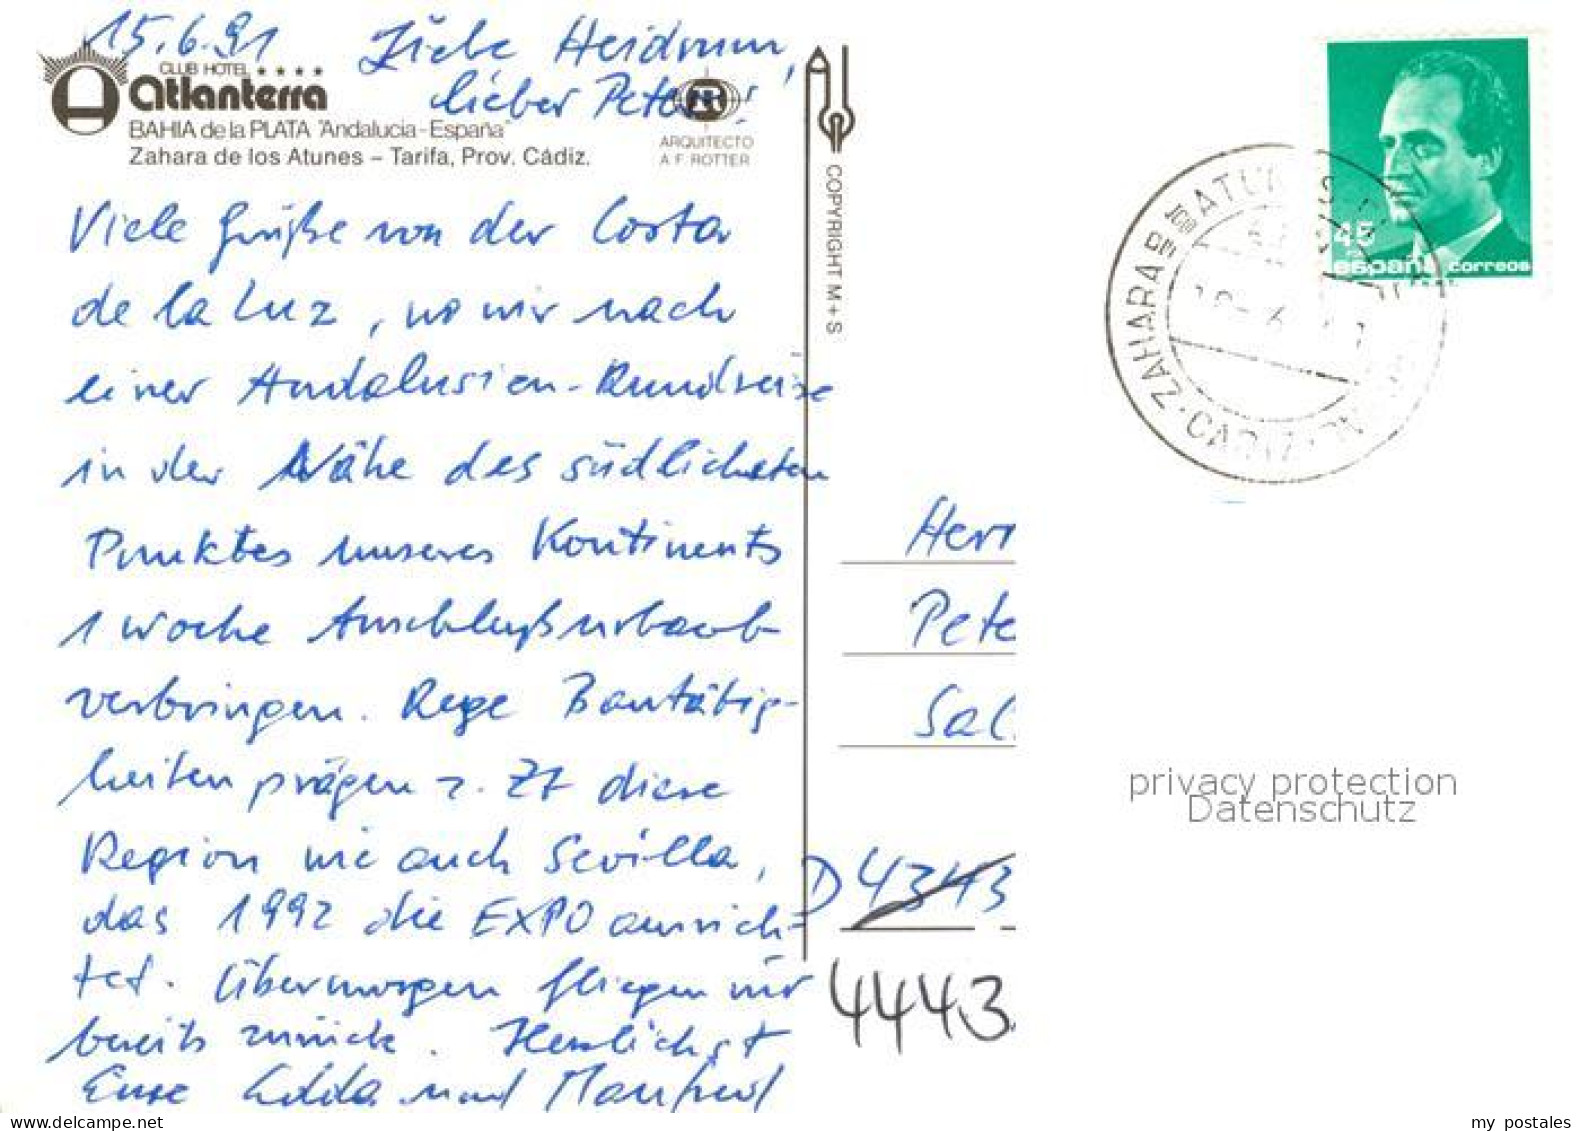 15.6.91 Liebe Heidrun,
lieber Peter!
CLUB HOTEL ****
atlanterra
BAHIA de la PLATA "Andalucia - España"
Zahara de los Atunes – Tarifa, Prov. Cádiz.
ARQUITECTO
A.F. ROTTER
COPYRIGHT M + S
Viele Grüße von der Costa
de la Luz, wo wir nach
einer Andalusien-Rundreise
in der Nähe des südlichsten
Punktes unseres Kontinents
1 Woche Anschlußurlaub
verbringen. Rege Bautätig-
keiten prägen z. Zt diese
Region wie auch Sevilla,
das 1992 die EXPO ausrich-
tet. Übermorgen fliegen wir
bereits zurück. Herzlichst
Eure Edda und Manfred
45
españa correos
ZAHARA DE LOS ATUNES
CADIZ
Herr
Pete
Sal
D 4343
4443
privacy protection
Datenschutz
www.delcampe.net
my_postales